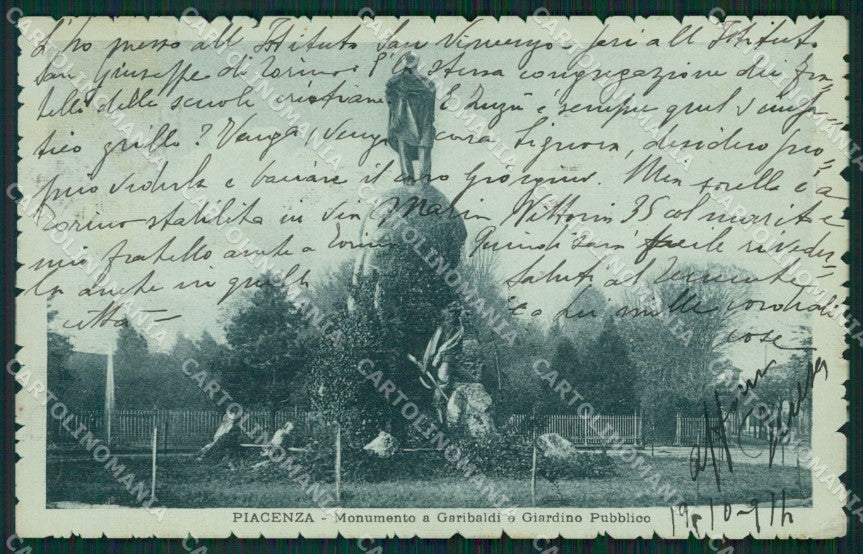 L'ho presso all'Istituto San Vincenzo - feci all'Istituto
San Giuseppe di Torino. È la stessa congregazione dei Fra-
telli delle scuole cristiane. E Zuzù è sempre quel simpa-
tico grillo? Venga, venga ancora Signora, desidero pro-
prio vederla e baciare il caro Giorgino. Mia sorella è a
Torino stabilita in via Maria Vittoria 35 col marito e
mio fratello anche a Torino. Quindi sarà facile riveder-
la anche in quella Saluti al Tenente
città e a Lei mille cordiali
cose
19-10-914
PIACENZA - Monumento a Garibaldi e Giardino Pubblico
CARTOLINOMANIA